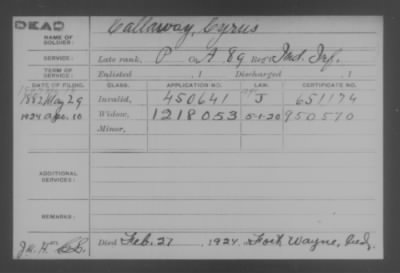 DEAD
NAME OF SOLDIER: Callaway, Cyrus
SERVICE: Late rank, P Co. A 89 Reg't Ind. Inf.
TERM OF SERVICE: Enlisted , 1 Discharged , 1
DATE OF FILING. CLASS. APPLICATION NO. LAW. CERTIFICATE NO.
1882 May 29 Invalid, 450641 J 651174
1924 Apr. 10 Widow, 1218053 5-1-20 950570
Minor,
ADDITIONAL SERVICES:
REMARKS:
Died Feb. 27, 1924, Fort Wayne, Ind.